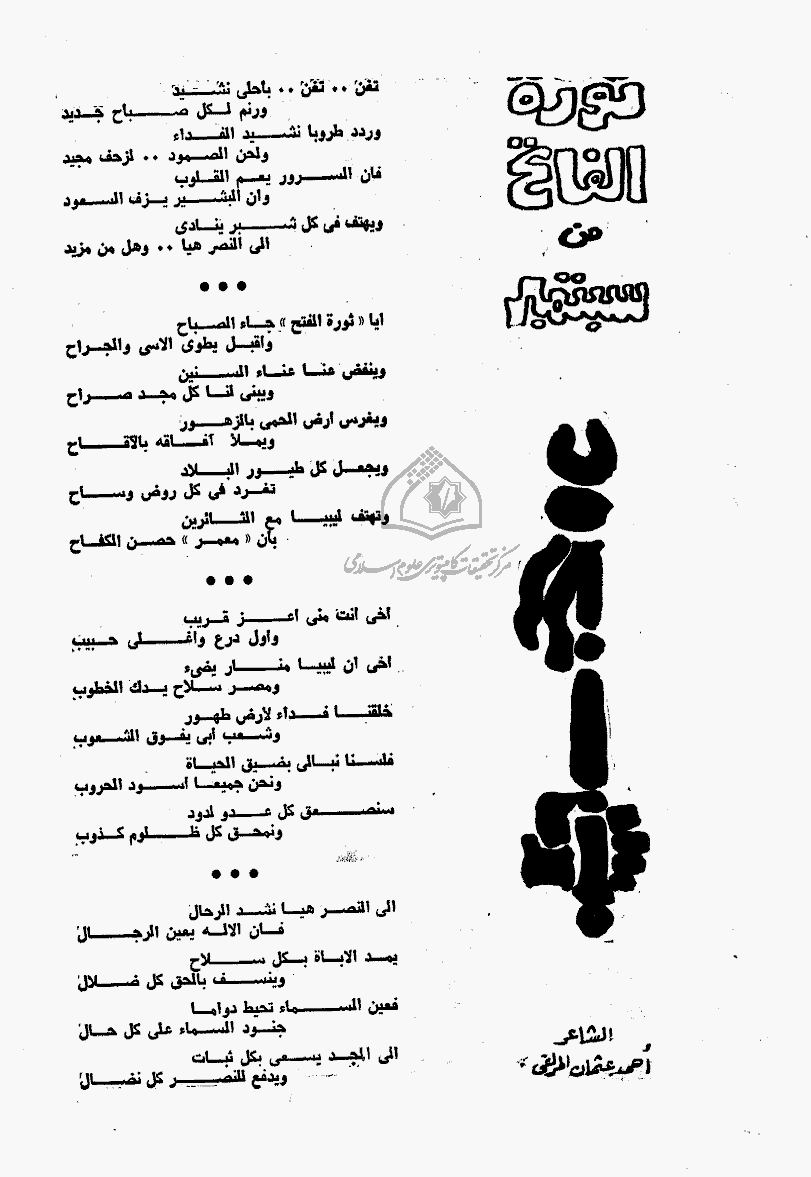 ثورة
الفاتح
من
سبتمبر
تغن ٠٠ تغن ٠٠ بأحلى نشيد
ورنم لكل صباح جديد
وردد طروبا نشيد الفداء
ولحن الصمود ٠٠ لزحف مجيد
فان السرور يعم القلوب
وان البشير يزف السعود
ويهتف فى كل شبر ينادى
الى النصر هيا ٠٠ وهل من مزيد
● ● ●
أيا « ثورة الفتح » جاء الصباح
وأقبل يطوى الاسى والجراح
وينفض عنا عناء السنين
ويبنى لنا كل مجد صراح
ويغرس أرض الحمى بالزهور
ويملأ آفاقه بالأقاح
ويجعل كل طيور البلاد
تغرد فى كل روض وساح
وتهتف ليبيا مع الثائرين
بأن « معمر » حصن الكفاح
● ● ●
أخى أنت منى أعز قريب
وأول درع وأغلى حبيب
أخى ان ليبيا منار يضىء
ومصر سلاح يدك الخطوب
خلقنا فداء لأرض طهور
وشعب أبى يفوق الشعوب
فلسنا نبالى بضيق الحياة
ونحن جميعا أسود الحروب
سنصعق كل عدو لدود
ونمحق كل ظلوم كذوب
● ● ●
الى النصر هيا نشد الرحال
فان الاله يعين الرجال
يمد الاباة بكل سلاح
وينسف بالحق كل ضلال
فعين السماء تحيط دواما
جنود السماء على كل حال
الى المجد يسعى بكل ثبات
ويدفع للنصر كل نضال
الشاعر
أحمد عثمان المراقى
مركز تحقيقات كامپيوترى علوم اسلامى